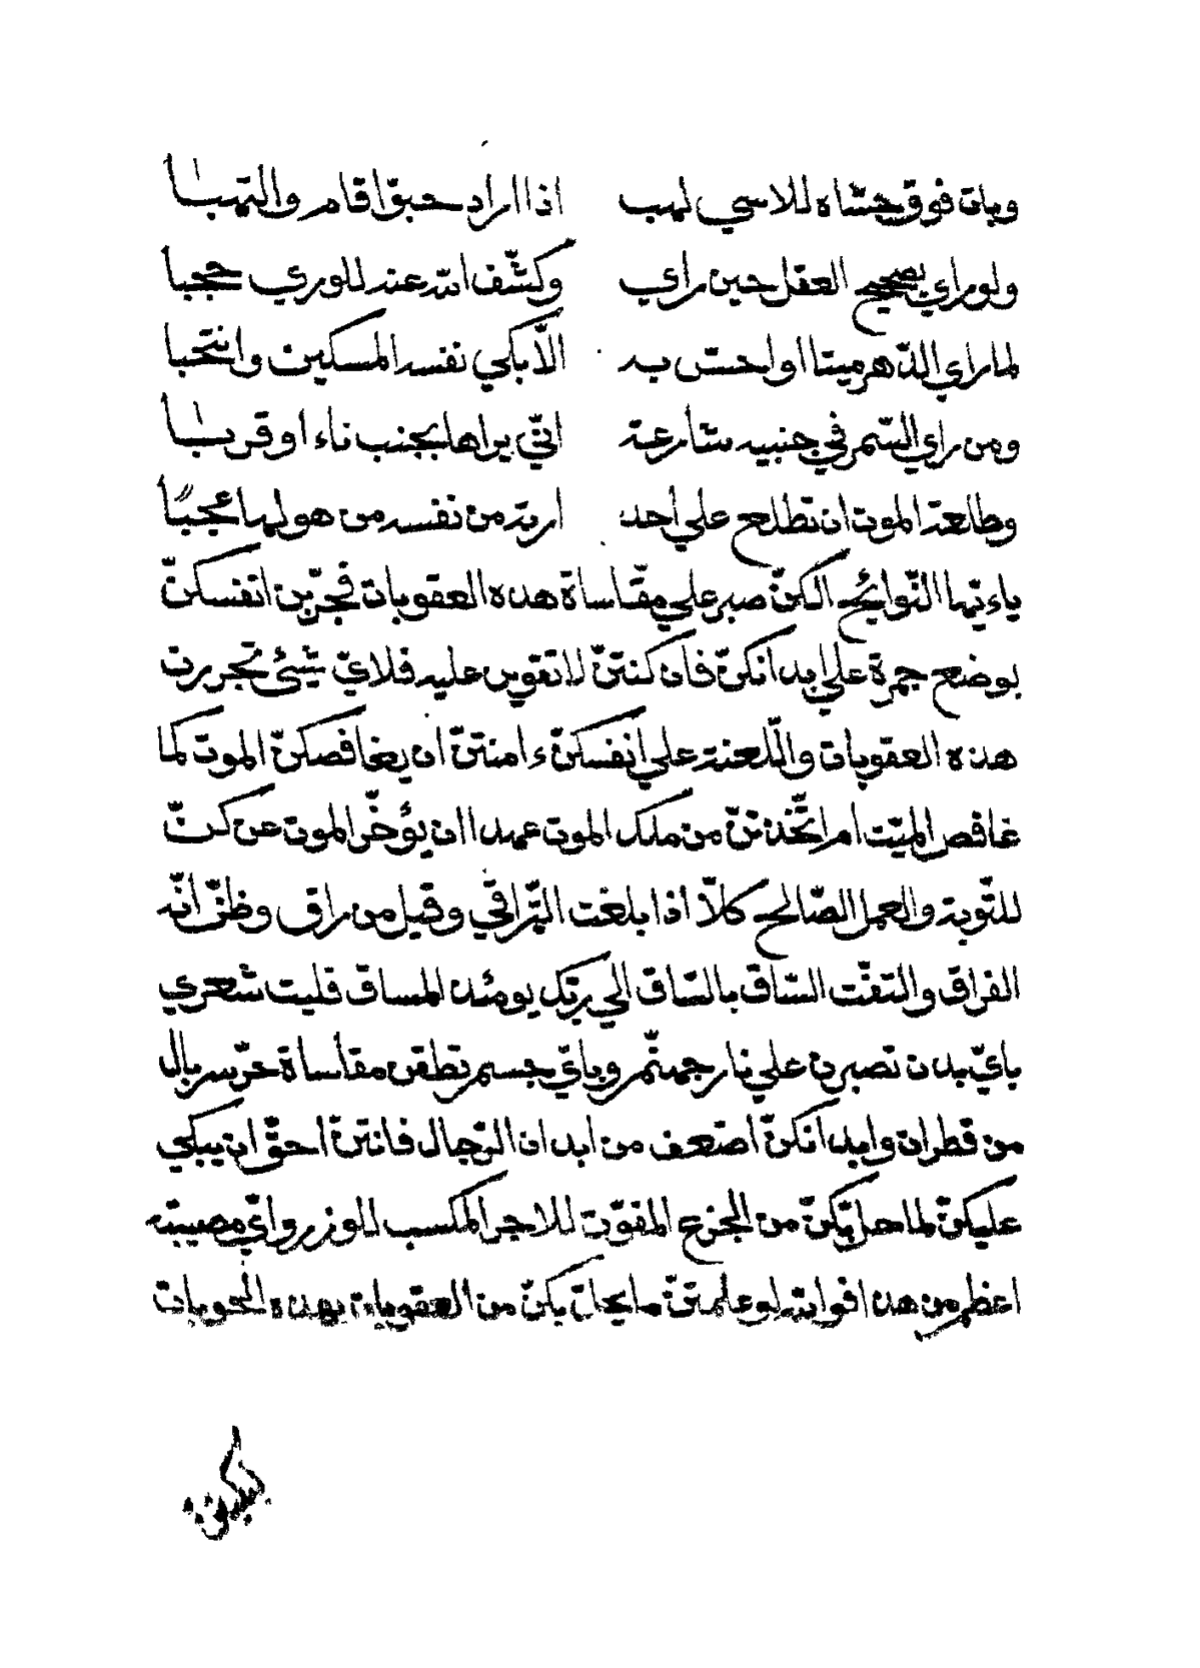 وبات فوق حشاه للاسي لهب اذا اراد حبوّا قام والتهبا
ولو راي بصحيح العقل حين راي وكشّف الله عنه للوري حجبا
لما راي الدّهر ميتا او احسّ به الّا بكي نفسه المسكين وانتحبا
ومن راي السّمر في جنبيه شارعة انّي يراها بجنب ناء او قربا
وطالعة الموت ان تطلع علي احد ارته من نفسه من هولها عجبًا
ياءيّها النّوائح الكنّ صبر علي مقّاساة هذه العقوبات فجرّبن انفسكنّ
بوضع جمرة علي ابدانكنّ فان كنتنّ لا تقوين عليه فلايّ شيئ تجررن
هذه العقوبات واللّعنة علي انفسكنّ ءامنتنّ ان يغافصكنّ الموت كما
غافص الميّت ام اتّخذتنّ من ملك الموت عهدا ان يؤخّر الموت عن كنّ
للتّوبة والعمل الصّالح كلّا اذا بلغت التّراقي وقيل من راق وظنّ انّه
الفراق والتفّت السّاق بالسّاق الي ربّك يومئذ المساق فليت شعري
بايّ بدن تصبرن علي نار جهنّم وبايّ جسم تطقن مقاساة حرّ سربال
من قطران وابدانكنّ اضعف من ابدان الرّجال فانتنّ احقّ ان يبكي
عليكنّ لما حلّ بكنّ من الجزع المفوّت للاجر المكسب للوزر وايّ مصيبة
اعظم من هذا فوالله لو علمتنّ ما يحلّ بكنّ من العقوبات بهذه الحوبات